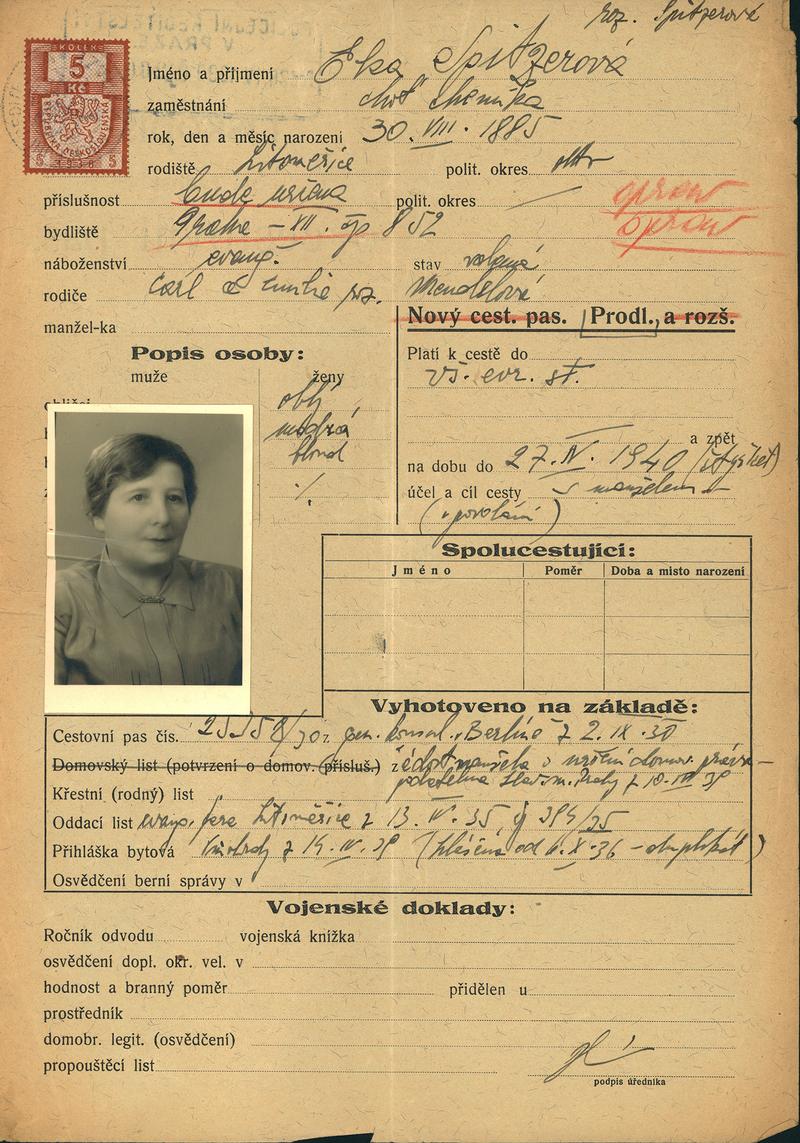 roz. Spitzerová
POLICEJNÍ ŘEDITELSTVÍ
V PRAZE
KOLEK
5
Kč
REPUBLIKA ČESKOSLOVENSKÁ
5 1938 5
Jméno a příjmení Elsa Spitzerová
zaměstnání choť chemika
rok, den a měsíc narození 30. VIII. 1885
rodiště Litoměřice polit. okres
příslušnost bude určena polit. okres
bydliště Praha – XII. čp 852
náboženství evang. stav
rodiče Carl a Emilie roz. Mendlová
manžel-ka
Nový cest. pas. Prodl., a rozš.
Popis osoby:
muže ženy
oblý
modrá
blond
·/.
Platí k cestě do
vš. evr. st.
a zpět
na dobu do 27. IV. 1940
účel a cíl cesty s manželem
(povolání)
Spolucestující:
Jméno Poměr Doba a misto narození
Vyhotoveno na základě:
Cestovní pas čís. gen. konsul. v Berlíně z 2. IX. 30
Domovský list (potvrzení o domov. (přísluš.) žádost manžela o určení domov. práva
Křestní (rodný) list
Oddací list evang. fara Litoměřice z 13. IV. 35 čj 394/35
Přihláška bytová z 14. IV. 39 (hlášena od X. 36 – duplikát)
Osvědčení berní správy v
Vojenské doklady:
Ročník odvodu vojenská knížka
osvědčení dopl. okr. vel. v
hodnost a branný poměr přidělen u
prostředník
domobr. legit. (osvědčení)
propouštěcí list
podpis úředníka